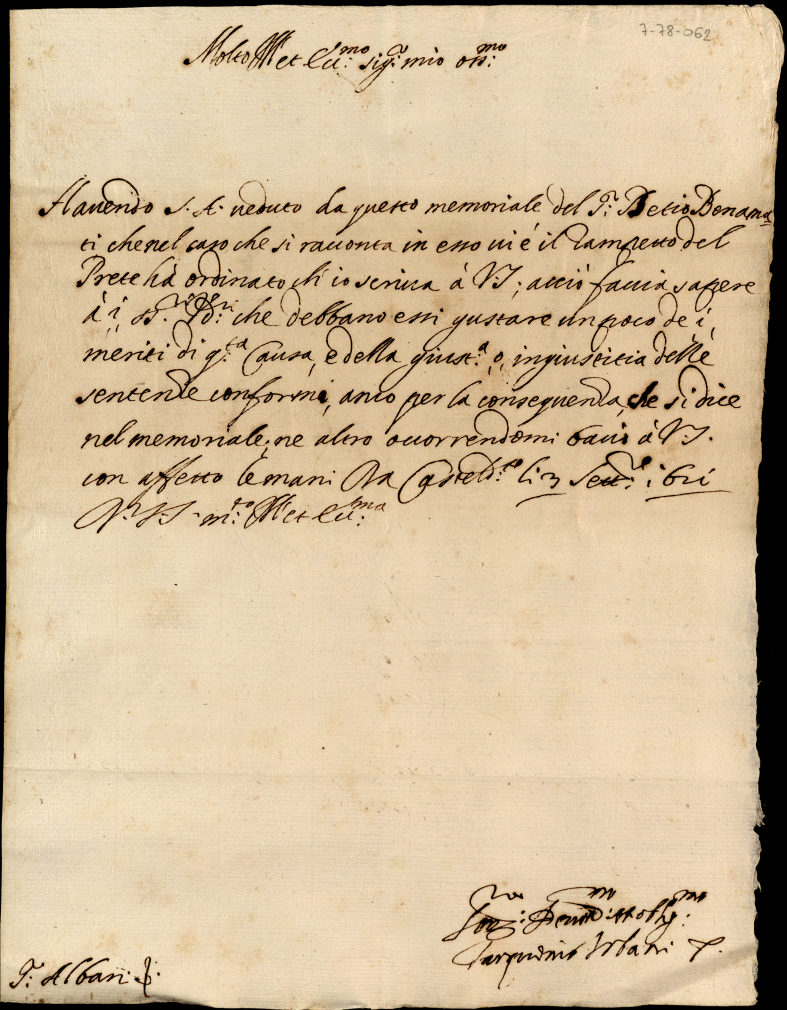 7-78-062
Molto Ill et Ecc:mo sig:r mio oss:mo
Havendo S. A. veduto da questo memoriale del S.r Betio Bonama
ti che nel caso che si racconta in esso vi é il del
Prete hà ordinato ch'io scriva à VS; acciò faccia sapere
à i, SS.ri che debbano essi gustare un poco de i,
meriti di q:ta Causa, e della giust:a o, ingiustitia delle
sentenze conformi, anco per la conseguenza, che si dice
nel memoriale, ne altro occorrendomi bacio à VS.
con affetto le mani Da Casteld:te li 3 Sett:re 1621
D. VS. m:to Ill et Ecc:ma
Ser:re oblig:mo
Urbani
S.r Albani